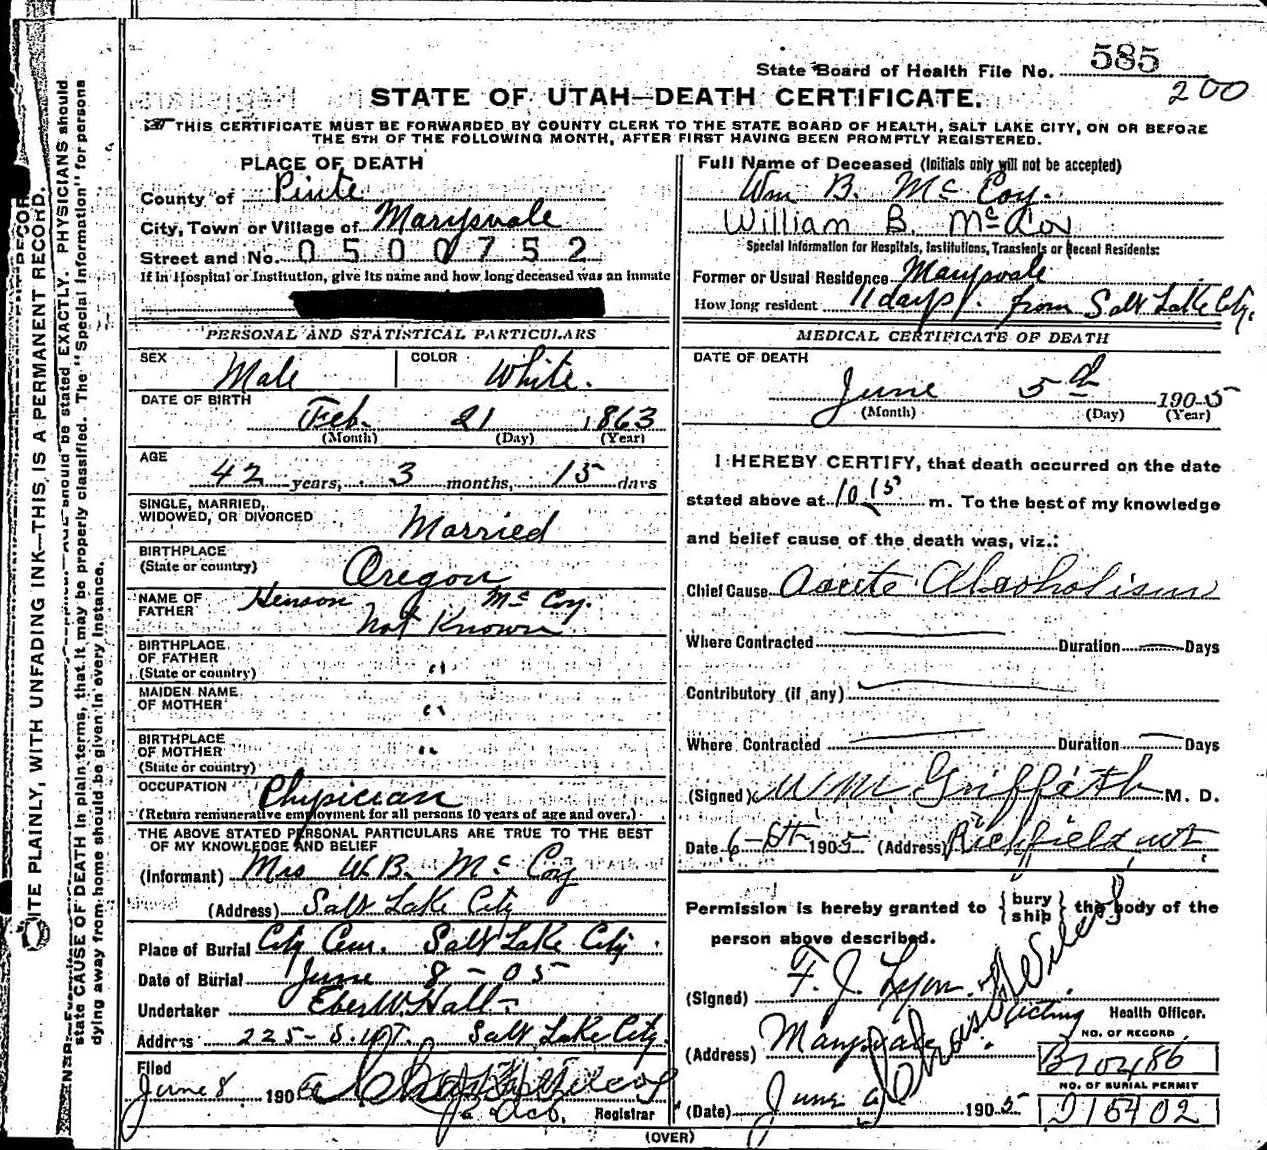 State Board of Health File No. 585
200
STATE OF UTAH—DEATH CERTIFICATE.
THIS CERTIFICATE MUST BE FORWARDED BY COUNTY CLERK TO THE STATE BOARD OF HEALTH, SALT LAKE CITY, ON OR BEFORE
THE 5TH OF THE FOLLOWING MONTH, AFTER FIRST HAVING BEEN PROMPTLY REGISTERED.
PLACE OF DEATH
County of Piute
City, Town or Village of Marysvale
Street and No. 0500752
If in Hospital or Institution, give its name and how long deceased was an inmate
PERSONAL AND STATISTICAL PARTICULARS
SEX Male COLOR White.
DATE OF BIRTH Feb. 21 1863
(Month) (Day) (Year)
AGE 42 years, 3 months, 15 days
SINGLE, MARRIED, WIDOWED, OR DIVORCED Married
BIRTHPLACE (State or country) Oregon
NAME OF FATHER Henson McCoy.
Not Known
BIRTHPLACE OF FATHER (State or country) "
MAIDEN NAME OF MOTHER "
BIRTHPLACE OF MOTHER (State or country) "
OCCUPATION Physician
(Return remunerative employment for all persons 10 years of age and over.)
THE ABOVE STATED PERSONAL PARTICULARS ARE TRUE TO THE BEST
OF MY KNOWLEDGE AND BELIEF
(Informant) Mrs W.B. McCoy
(Address) Salt Lake City
Place of Burial City Cem. Salt Lake City.
Date of Burial June 8-05
Undertaker Eber W. Hall
Address 225-S.W.T. Salt Lake City.
Filed
June 8 190
Registrar
Full Name of Deceased (Initials only will not be accepted)
Wm B. McCoy.
William B. McCoy
Special Information for Hospitals, Institutions, Transients or Recent Residents:
Former or Usual Residence Marysvale
How long resident 11 days. from Salt Lake City.
MEDICAL CERTIFICATE OF DEATH
DATE OF DEATH
June 5th 1905
(Month) (Day) (Year)
I HEREBY CERTIFY, that death occurred on the date
stated above at 10 15 m. To the best of my knowledge
and belief cause of the death was, viz.:
Chief Cause Acute Alcoholism
Where Contracted Duration Days
Contributory (if any)
Where Contracted Duration Days
(Signed) Wm Griffith M. D.
Date 6-6th 1905 (Address) Richfield, Ut.
Permission is hereby granted to {bury ship} the body of the
person above described.
(Signed) F. J. Lyon.
Acting Health Officer.
(Address) Marysvale
(Date) June 1905
NO. OF RECORD
B20486
NO. OF BURIAL PERMIT
D15402
(OVER)
ITE PLAINLY, WITH UNFADING INK—THIS IS A PERMANENT RECORD.
should be stated EXACTLY. PHYSICIANS should
state CAUSE OF DEATH in plain terms, that it may be properly classified. The "Special Information" for persons
dying away from home should be given in every instance.